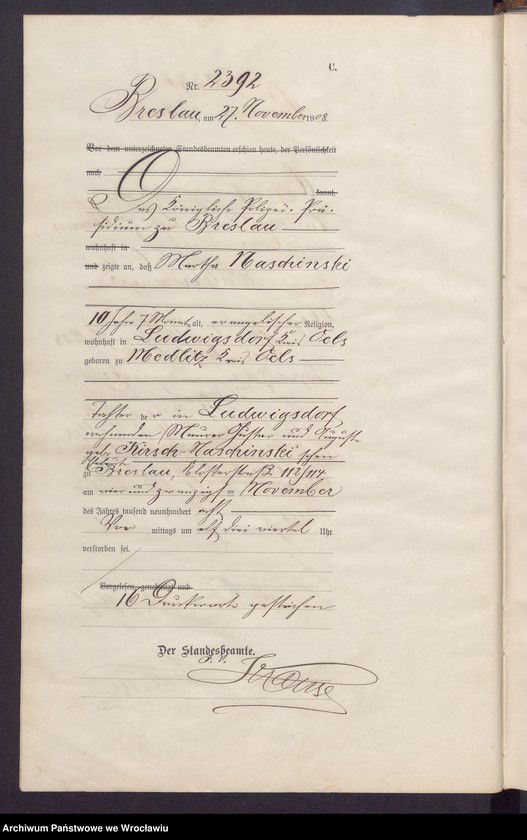 C.
Nr. 2392
Breslau, am 27. November 1908.
Vor dem unterzeichneten Standesbeamten erschien heute, der Persönlichkeit
nach
kannt,
Das Königliche Polizei-Prä-
sidium zu Breslau
wohnhaft in
und zeigte an, daß Martha Naschinski
10 Jahre 7 Monate alt, evangelischer Religion,
wohnhaft in Ludwigsdorf Kreis Oels
geboren zu Medlitz Kreis Oels
Tochter der in Ludwigsdorf
wohnenden Maurer und Auguste
geb. Kirsch Naschinski'schen
Eheleute
zu Breslau, Klosterstraße 112/114
am vier und zwanzigsten November
des Jahres tausend neunhundert acht
Vor mittags um elf drei viertel Uhr
verstorben sei.
Vorgelesen, genehmigt und
16 Druckworte gestrichen
Der Standesbeamte.
Archiwum Państwowe we Wrocławiu